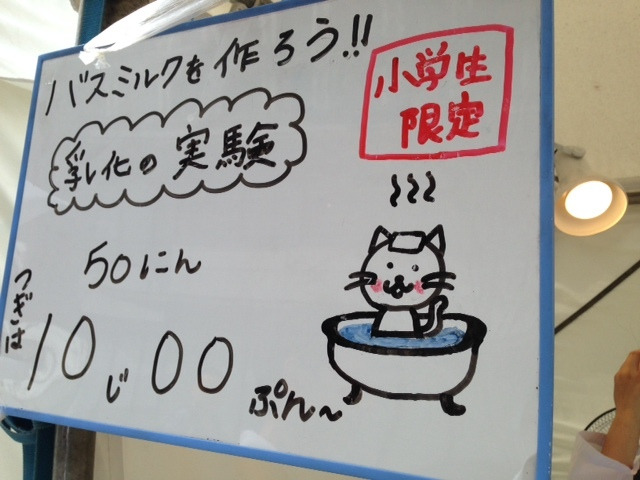 バスミルクを作ろう!!
小学生
限定
乳化の実験
50にん
つぎは
10じ00ぷん~